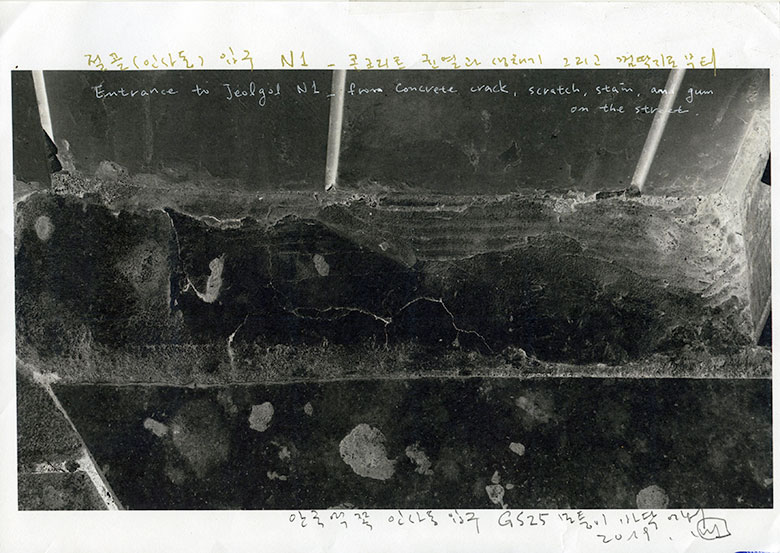 절골(인사동) 입구 N1 _ 콘크리트 균열과 생채기 그리고 껌딱지로부터
Entrance to Jeolgol N1 _ from Concrete crack, scratch, stain, and gum
on the street.
안국역쪽 인사동 입구 GS25 모퉁이 바닥
2019.